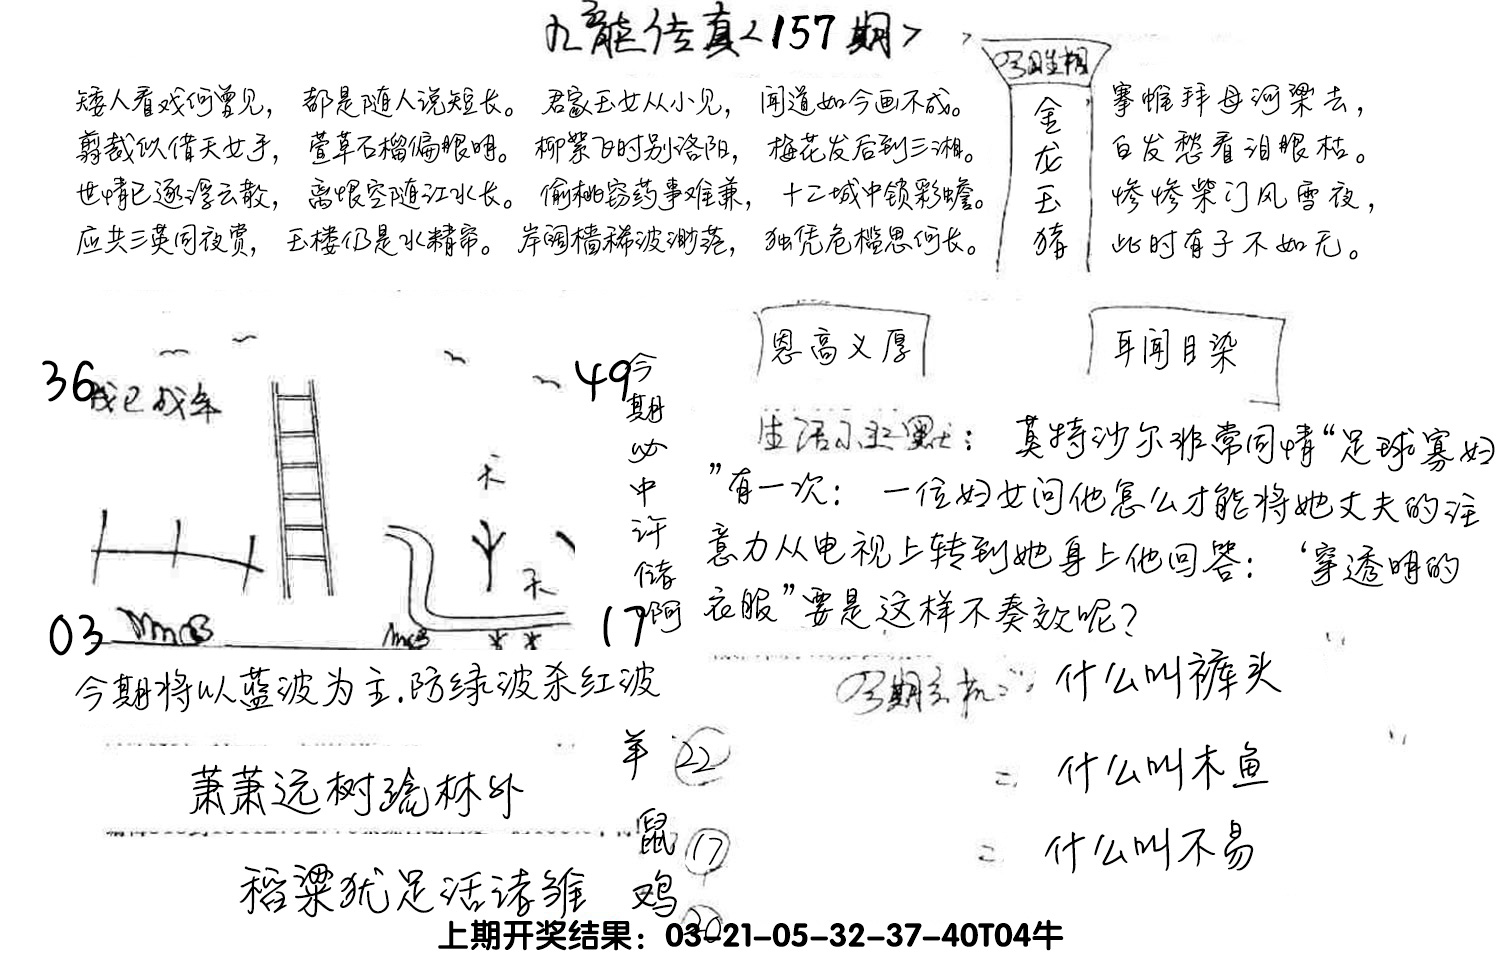 九龙传真<157期>
矮人看戏何曾见，都是随人说短长。君家玉女从小见，闻道如今画不成。
剪裁似借天女手，萱草石榴偏眼明。柳絮飞时别洛阳，梅花发后到三湘。
世情已逐浮云散，离恨空随江水长。偷桃窃药事难兼，十二城中锁彩蟾。
应共三英同夜赏，玉楼仍是水精帘。岸阔樯稀波渺茫，独凭危槛思何长。
金龙玉猪
搴帷拜母河梁去，
白发愁看泪眼枯。
惨惨柴门风雪夜，
此时有子不如无。
恩高义厚
耳闻目染
36
49
03
17
今期必中许储啊
生活幽默：莫特沙尔非常同情“足球寡妇
”有一次：一位妇女问他怎么才能将她丈夫的注
意力从电视上转到她身上他回答：‘穿透明的
衣服”要是这样不奏效呢？
今期将以蓝波为主.防绿波杀红波
今期玄机：什么叫裤头
什么叫木鱼
什么叫不易
萧萧远树疏林外
稻粱犹足活诸雏
羊 22
鼠 17
鸡 20
上期开奖结果：03-21-05-32-37-40T04牛